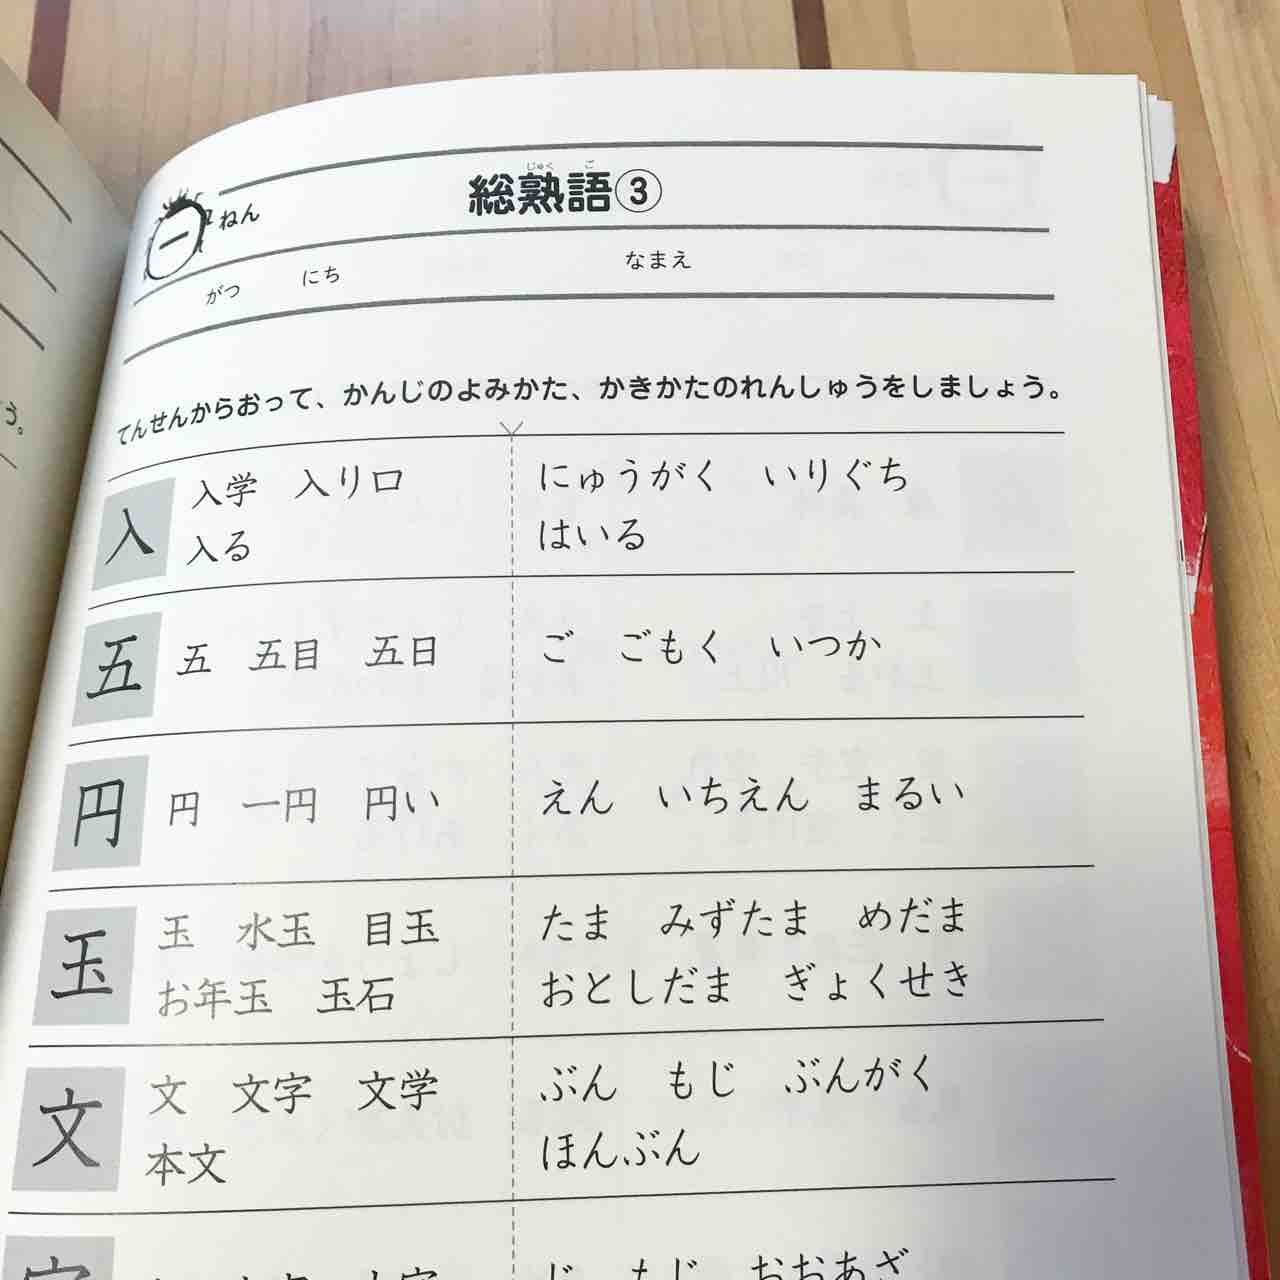 じゅく ご
総熟語③
一ねん
がつ にち なまえ
てんせんからおって、かんじのよみかた、かきかたのれんしゅうをしましょう。
入 入学 入り口 にゅうがく いりぐち
入る はいる
五 五 五目 五日 ご ごもく いつか
円 円 一円 円い えん いちえん まるい
玉 玉 水玉 目玉 たま みずたま めだま
お年玉 玉石 おとしだま ぎょくせき
文 文 文字 文学 ぶん もじ ぶんがく
本文 ほんぶん
字 じ もじ おおあざ
う。